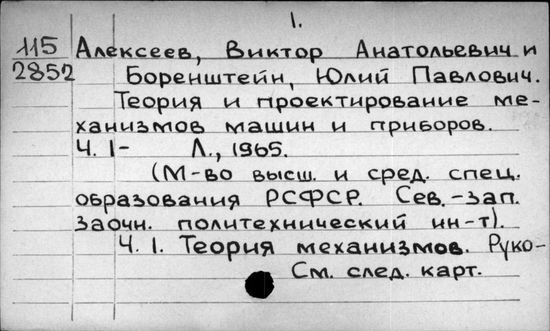 1.
115
2852
Алексеев, Виктор Анатольевич и
Боренштейн, Юлий Павлович.
Теория и проектирование ме-
ханизмов машин и приборов.
Ч. 1- Л., 1965.
(М-во высш. и сред. спец.
образования РСФСР. Сев.-зап.
заочн. политехнический ин-т).
Ч. 1. Теория механизмов. Руко-
См. след. карт.